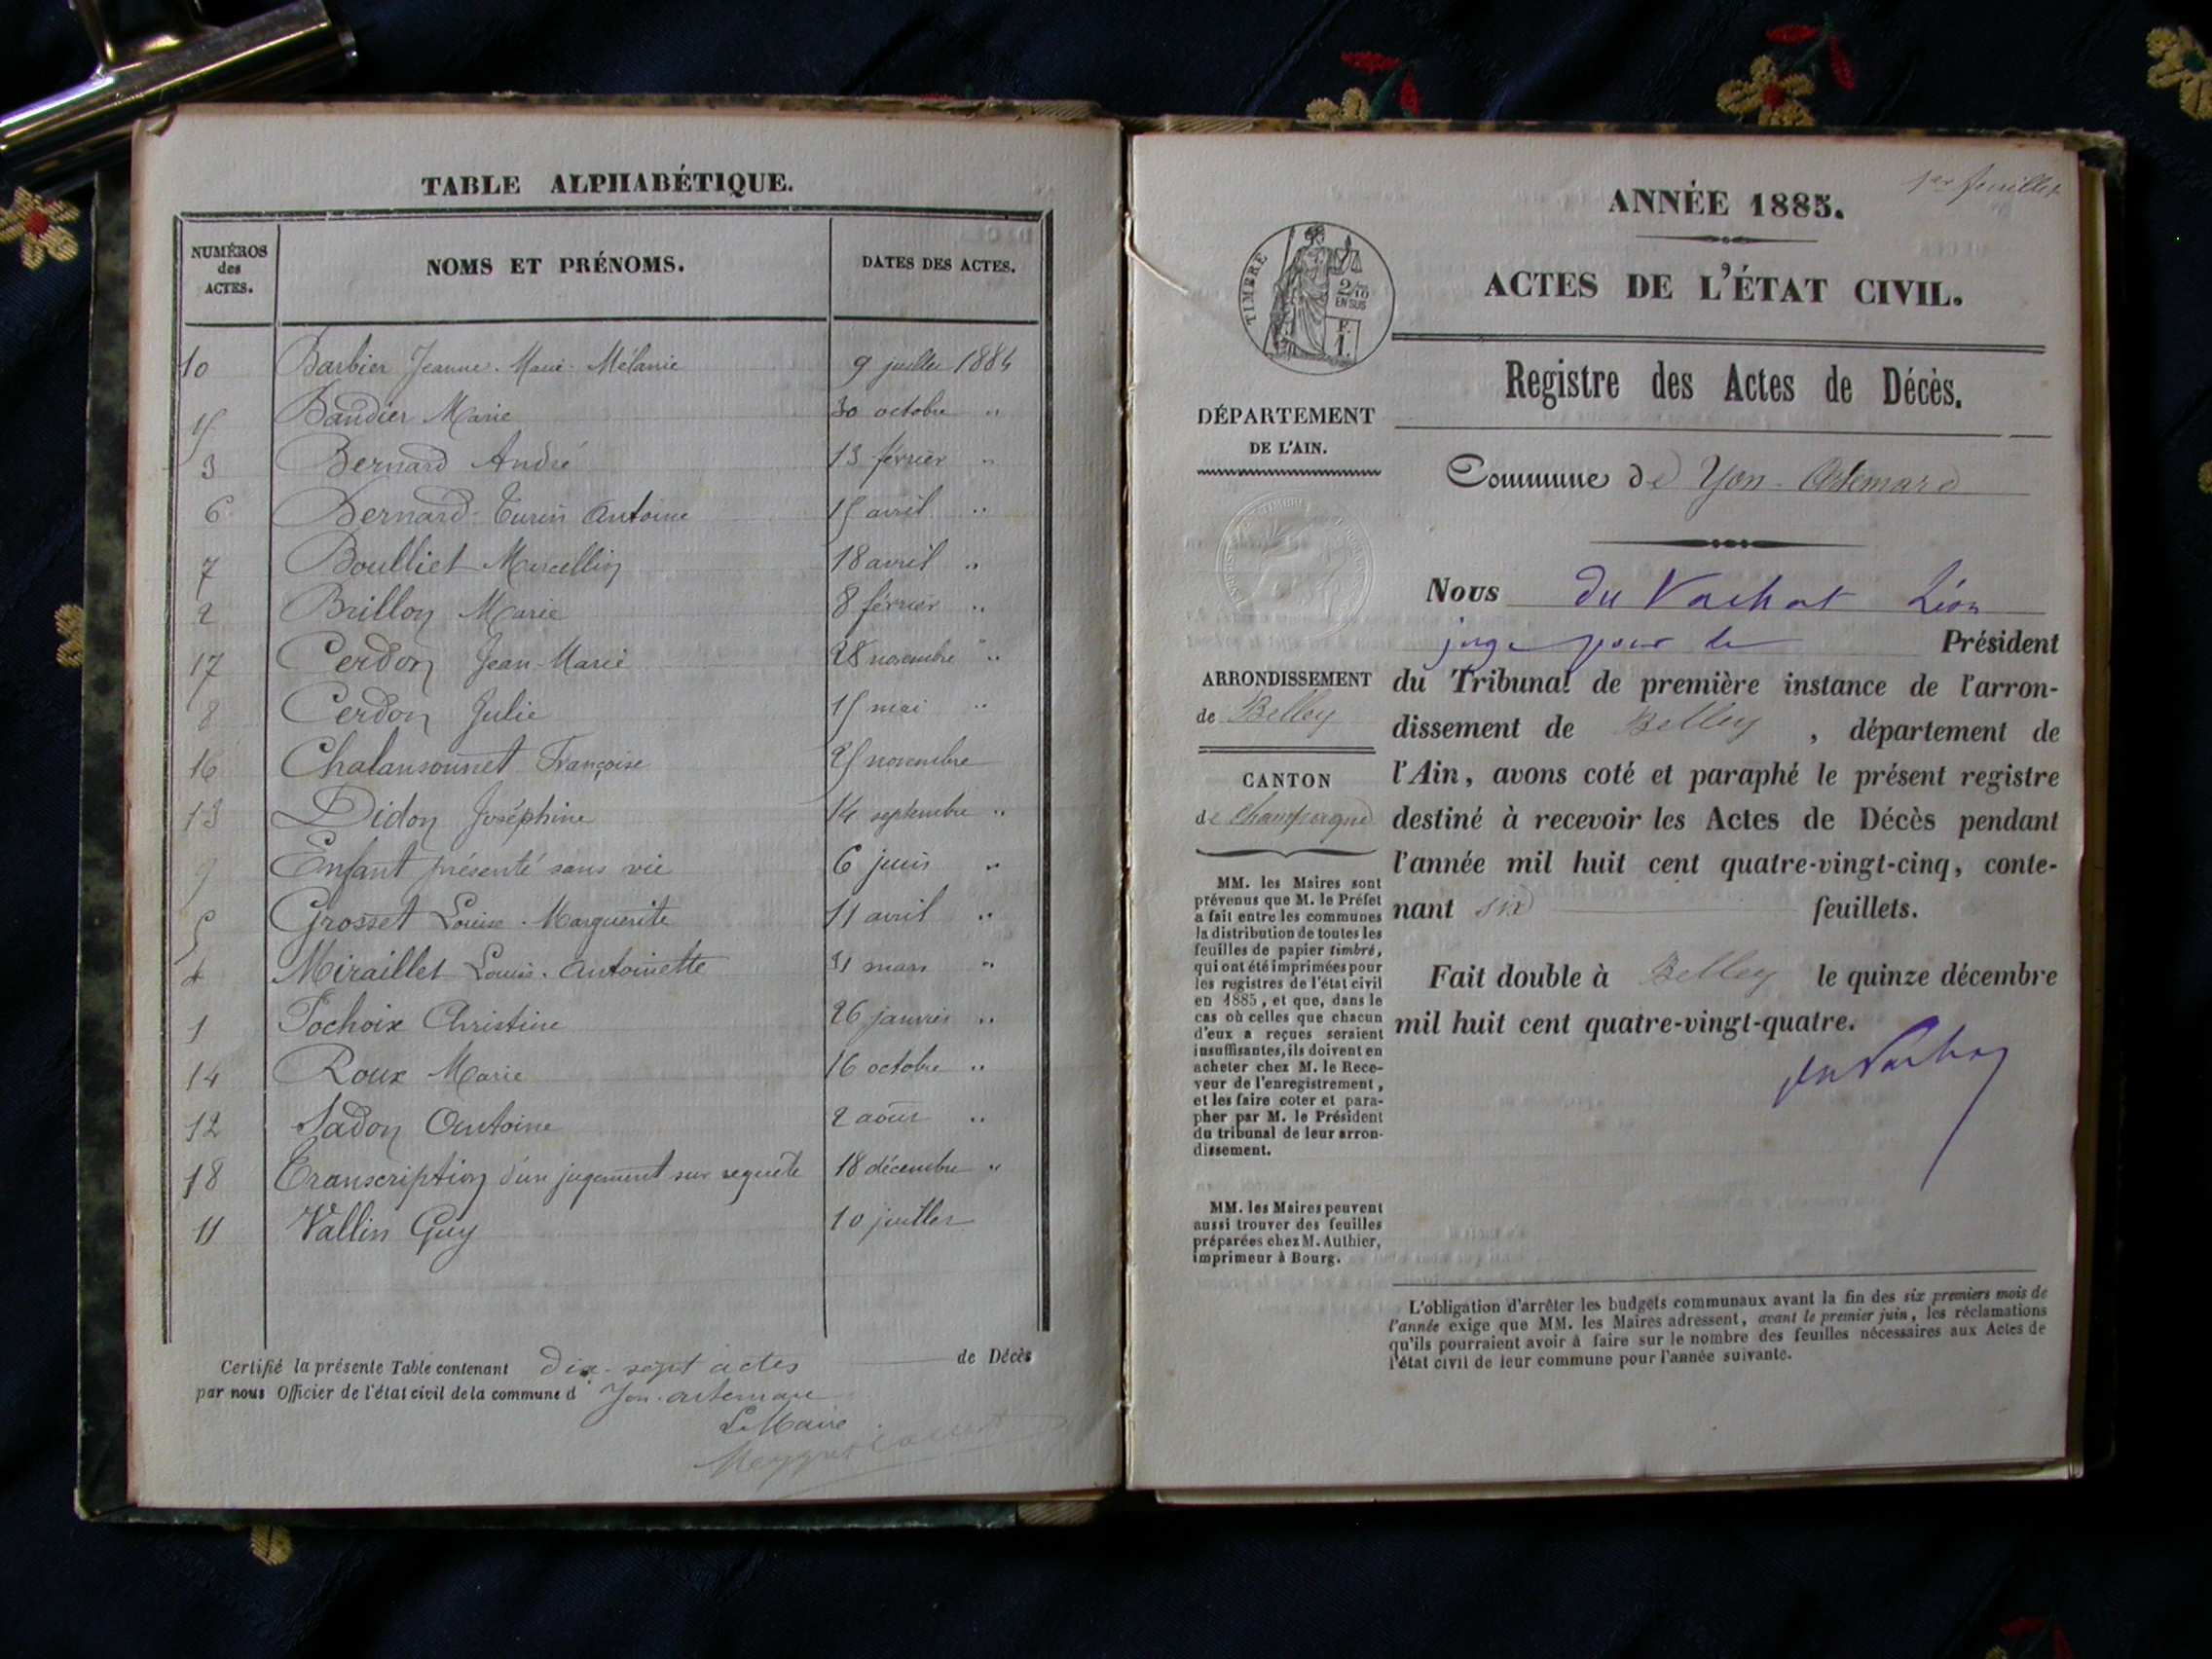 TABLE ALPHABÉTIQUE.
NUMÉROS des ACTES. NOMS ET PRÉNOMS. DATES DES ACTES.
10 Barbier Jeanne-Marie-Mélanie 9 juillet 1884
15 Baudier Marie 30 octobre "
3 Bernard André 13 février "
6 Bernard-Turin Antoine 15 avril "
7 Boulliet Marcellin 18 avril "
2 Brillon Marie 8 février "
17 Cerdon Jean-Marie 28 novembre "
8 Cerdon Julie 15 mai "
16 Chalansonnet Françoise 25 novembre
13 Didon Joséphine 14 septembre "
9 Enfant présenté sans vie 6 juin "
5 Grosset Louise-Marguerite 11 avril "
4 Miraillet Louise-Antoinette 31 mars "
1 Pochoix Christine 26 janvier "
14 Roux Marie 16 octobre "
12 Sadon Antoine 2 août "
18 Transcription d'un jugement sur requête 18 décembre "
11 Vallin Guy 10 juillet
Certifié la présente Table contenant dix-sept actes de Décès
par nous Officier de l'état civil de la commune d'Yon-artemare
Le Maire
1er feuillet
ANNÉE 1885.
ACTES DE L'ÉTAT CIVIL.
TIMBRE
2/10
EN SUS
F.
1.
Registre des Actes de Décès.
DÉPARTEMENT
DE L'AIN.
Commune de Yon-Artemare
Nous du Vachat Léon
juge pour le Président
du Tribunal de première instance de l'arron-
dissement de Belley, département de
l'Ain, avons coté et paraphé le présent registre
destiné à recevoir les Actes de Décès pendant
l'année mil huit cent quatre-vingt-cinq, conte-
nant six feuillets.
Fait double à Belley le quinze décembre
mil huit cent quatre-vingt-quatre.
du Vachat
ARRONDISSEMENT
de Belley
CANTON
de Champagne
MM. les Maires sont
prévenus que M. le Préfet
a fait entre les communes
la distribution de toutes les
feuilles de papier timbré,
qui ont été imprimées pour
les registres de l'état civil
en 1885, et que, dans le
cas où celles que chacun
d'eux a reçues seraient
insuffisantes, ils doivent en
acheter chez M. le Rece-
veur de l'enregistrement,
et les faire coter et para-
pher par M. le Président
du tribunal de leur arron-
dissement.
MM. les Maires peuvent
aussi trouver des feuilles
préparées chez M. Authier,
imprimeur à Bourg.
L'obligation d'arrêter les budgets communaux avant la fin des six premiers mois de
l'année exige que MM. les Maires adressent, avant le premier juin, les réclamations
qu'ils pourraient avoir à faire sur le nombre des feuilles nécessaires aux Actes de
l'état civil de leur commune pour l'année suivante.